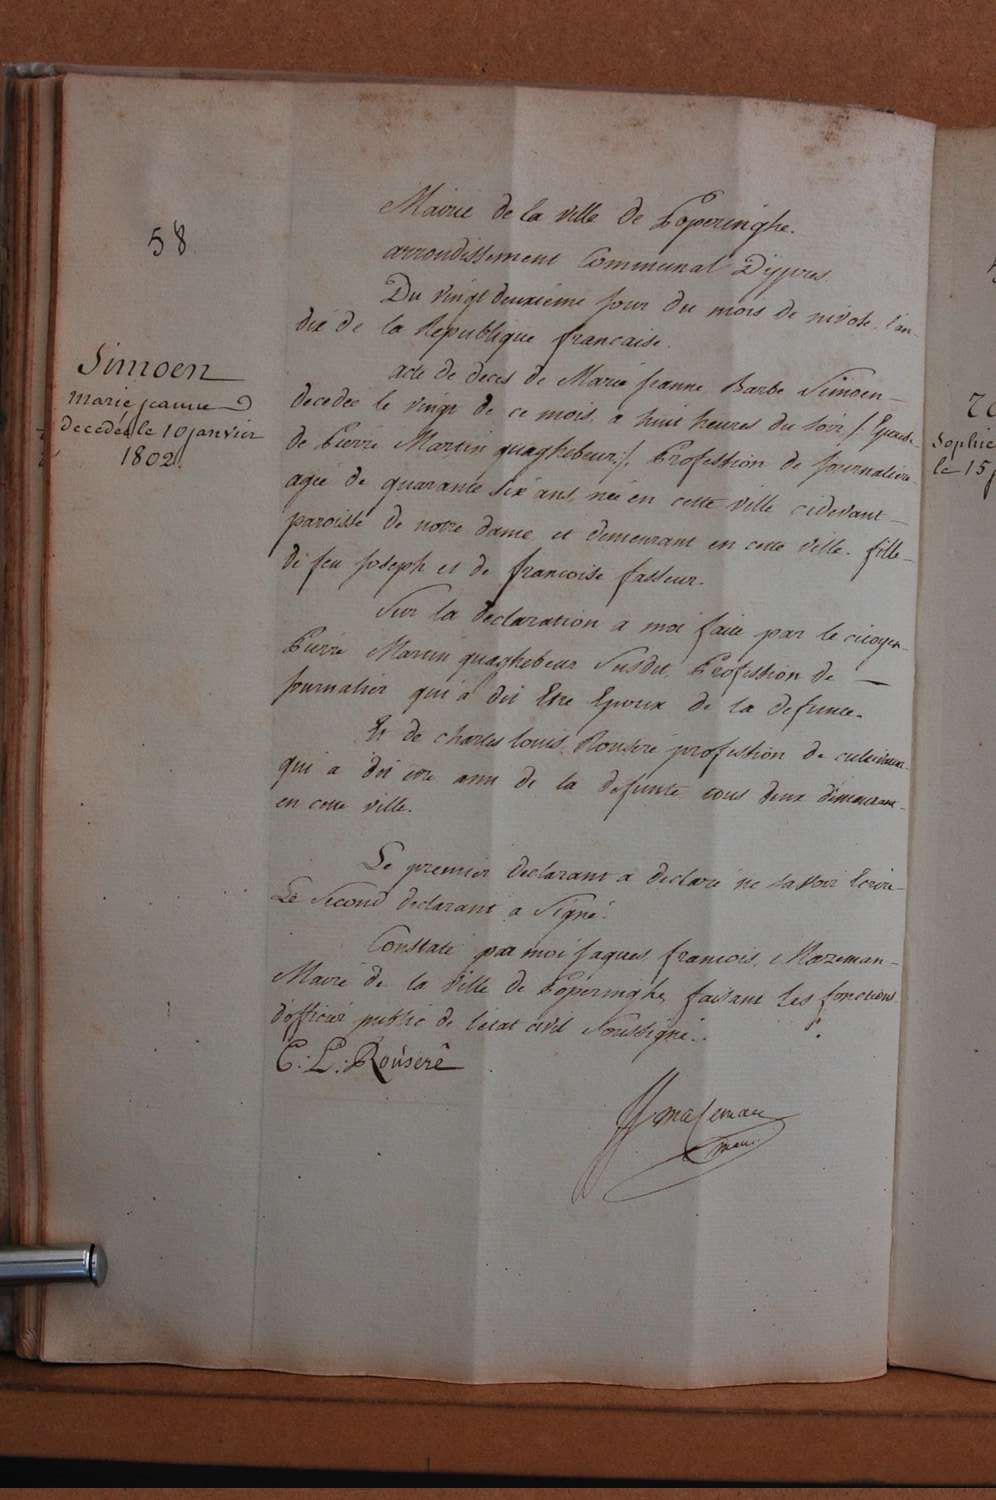 58
Simoen
marie jeanne D
decedée le 10 janvier
1802.
Mairie de la ville de Poperinghe.
arrondissement Communal D'ypres.
Du vingt deuxieme jour du mois de nivose, l'an
dix de la Republique francaise.
acte de deces de Marie Jeanne Barbe Simoen
decedee le vingt de ce mois, a huit heures du soir /: Epouse
de Pierre Martin quaghebeur :/, Profession de journaliere
agée de quarante six ans, née en cette ville cidevant
paroisse de notre dame, et demeurant en cette ville. fille
de feu Joseph et de francoise fasseur.
Sur la declaration a moi faite par le citoyen
Pierre Martin quaghebeur Susdit, Profession de
journalier qui a dit Etre Epoux de la defunte.
Et de charles louis Rouseré profession de cultivateur
qui a dit être ami de la defunte tous deux demeurant
en cette ville.
Le premier declarant a declaré ne savoir Ecrire
Le Second declarant a Signé.
Constaté par moi Jaques francois Mazeman
Maire de la Ville de Poperinghe, faisant les fonctions
d'officier public de l'etat civil Soussigné.
C: L: Rouseré
JJ mazeman
maire
Sophie
le 15 j